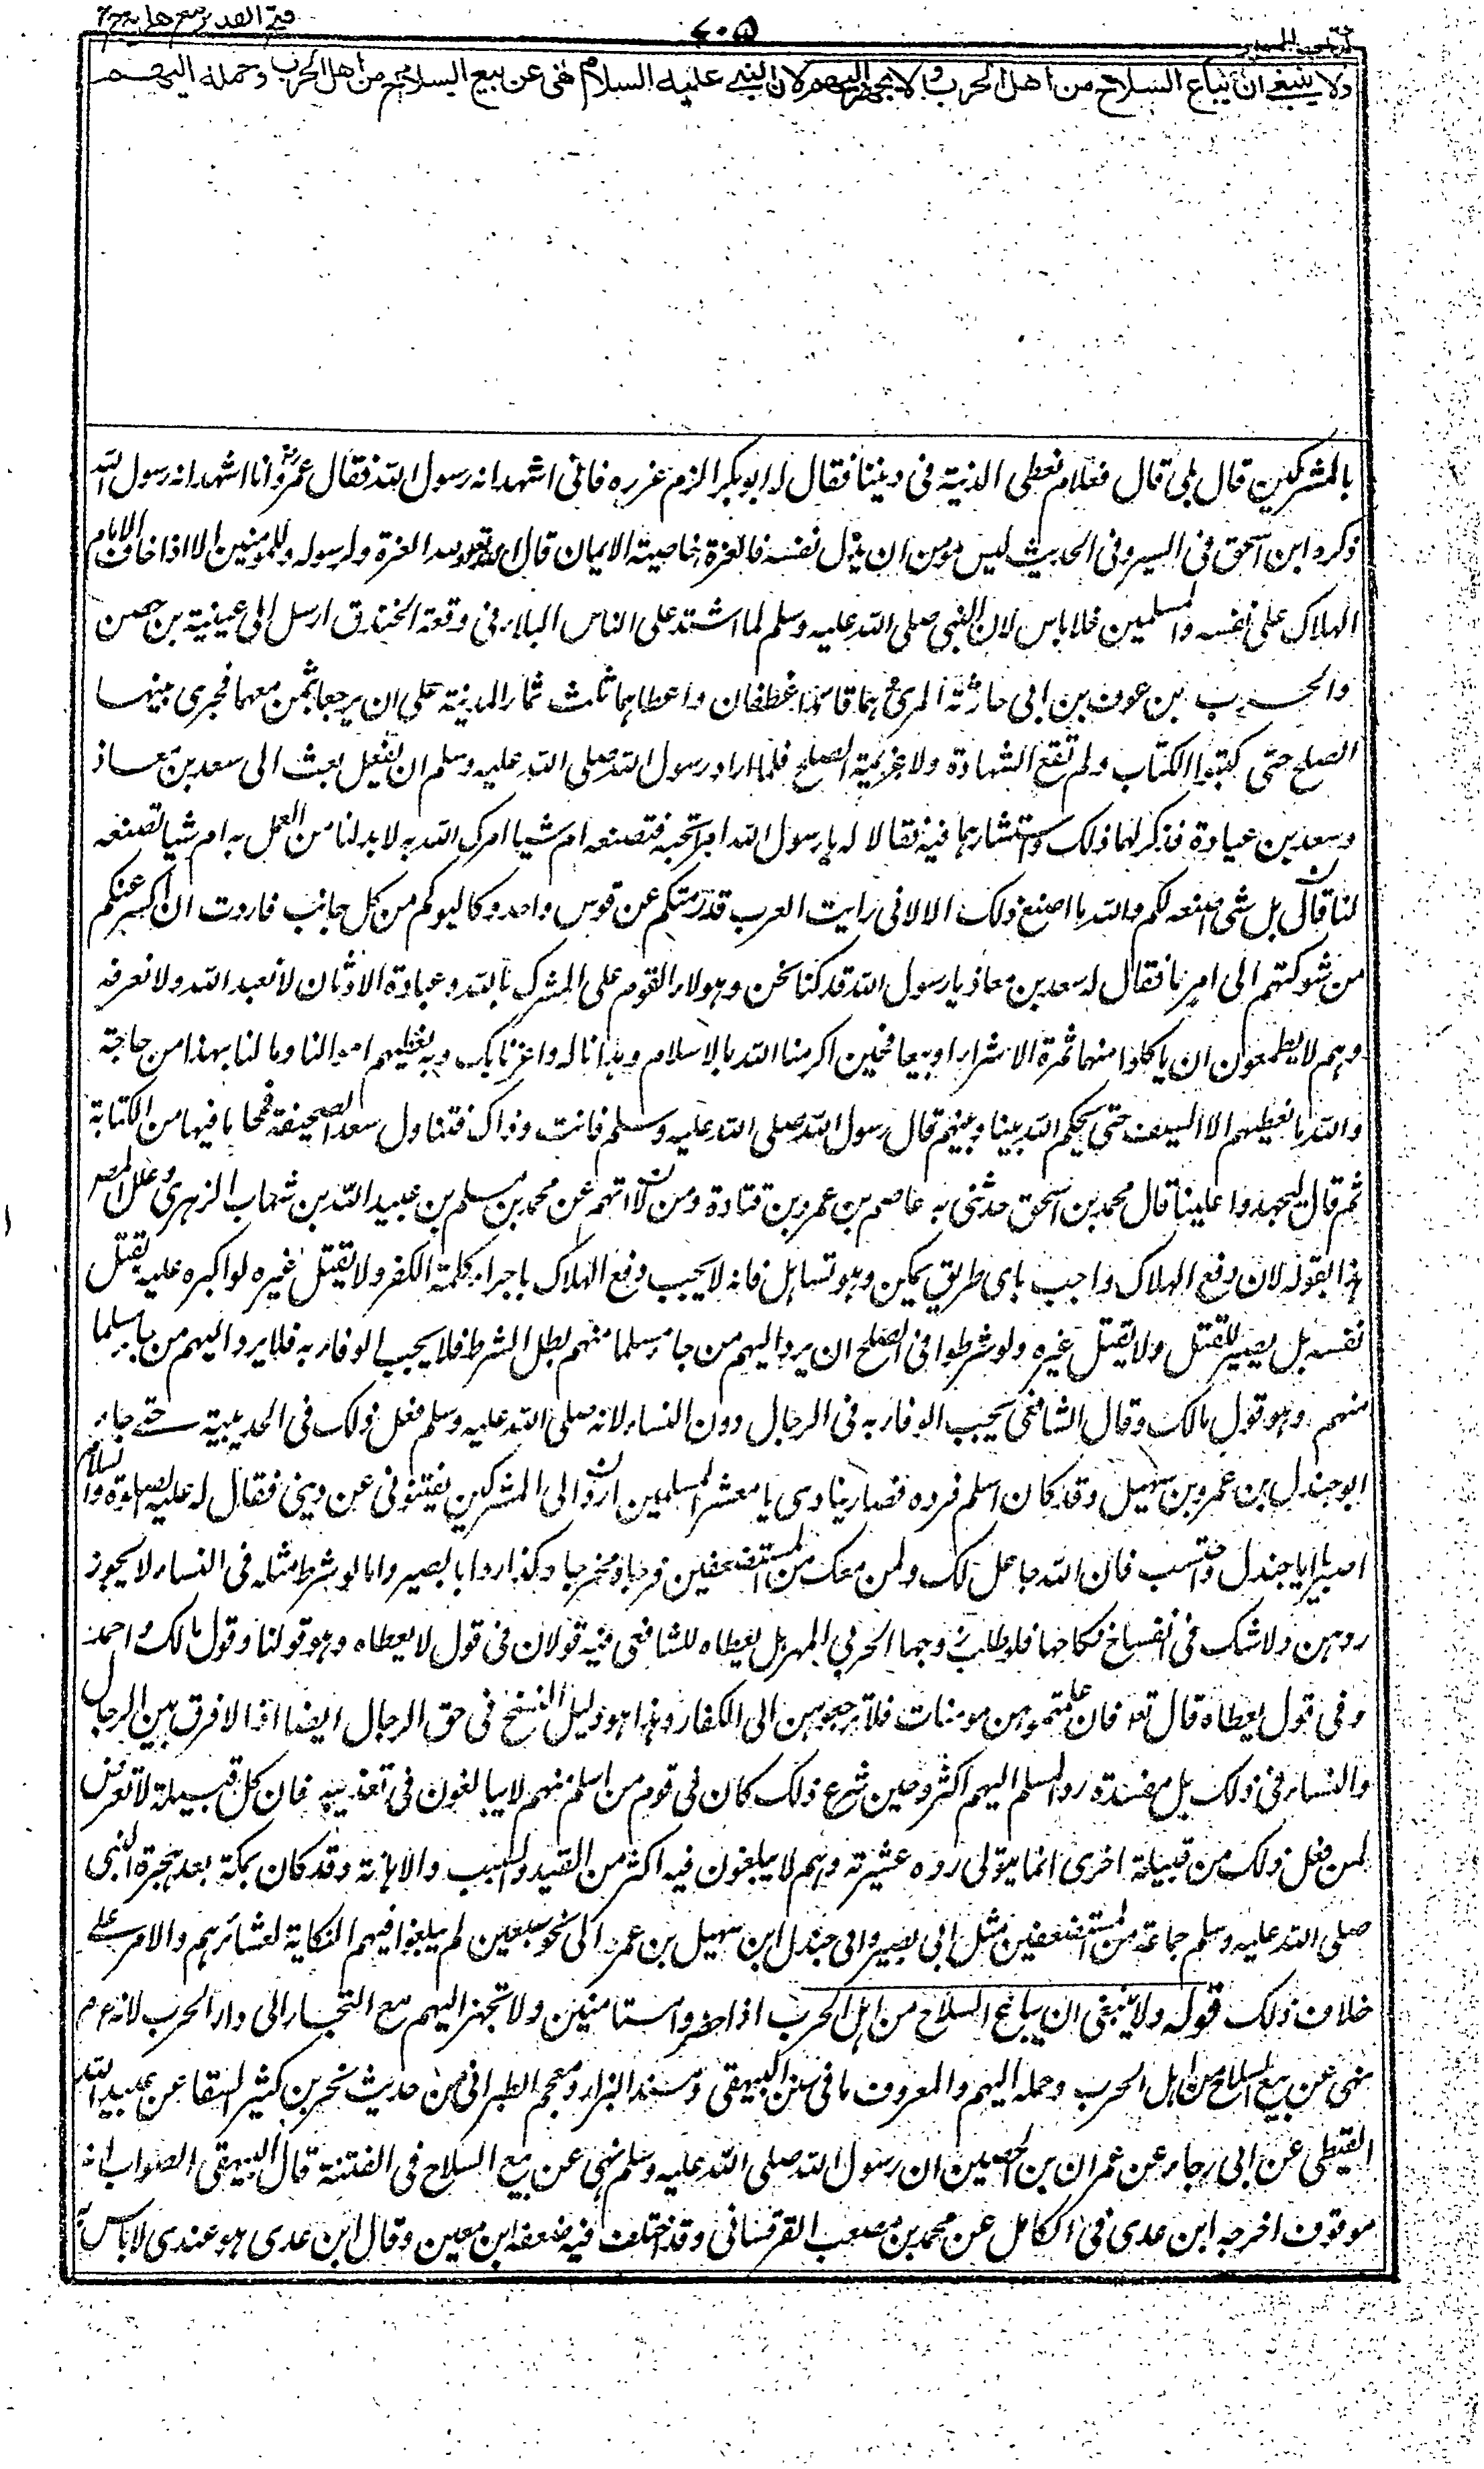 فتح القدير مع هداية ج٢
٧٠٥
كتاب السير
ولا ينبغي ان يباع السلاح من اهل الحرب ولا يجهز اليهم لان النبي عليه السلام نهى عن بيع السلاح من اهل الحرب وحمله اليهم
بالمشركين قال بلى قال فعلام نعطى الدنية فى ديننا فقال له ابو بكر الزم غرزه فانى اشهد انه رسول الله فقال عمر رض وانا اشهد انه رسول الله
ذكره ابن اسحق فى السير وفى الحديث ليس لمؤمن ان يذل نفسه فالعزة خاصية الايمان قال الله تعالى ولله العزة ولرسوله وللمؤمنين الا اذا خاف الامام
الهلاك على نفسه والمسلمين فلا باس لان النبى صلى الله عليه وسلم لما اشتد على الناس البلاء فى وقعة الخندق ارسل الى عيينة بن حصن
والحرث بن عوف بن ابى حارثة المرى وهما قائدا غطفان واعطاهما ثلث ثمار المدينة على ان يرجعا بمن معهما فجرى بينهما
الصلح حتى كتبوا الكتاب ولم تقع الشهادة ولا عزيمة الصلح فلما اراد رسول الله صلى الله عليه وسلم ان يفعل بعث الى سعد بن معاذ
وسعد بن عبادة فذكر لهما ذلك واستشارهما فيه فقالا له يا رسول الله امرا تحبه فتصنعه ام شيا امرك الله به لا بد لنا من العمل به ام شيا تصنعه
لنا قال بل شى اصنعه لكم والله ما اصنع ذلك الا لانى رايت العرب قد رمتكم عن قوس واحد وكالبوكم من كل جانب فاردت ان اكسر عنكم
من شوكتهم الى امر ما فقال له سعد بن معاذ يا رسول الله قد كنا نحن وهولاء القوم على الشرك بالله وعبادة الاوثان لا نعبد الله ولا نعرفه
وهم لا يطمعون ان ياكلوا منها ثمرة الا شراء او بيعا فحين اكرمنا الله بالاسلام وهدانا له واعزنا بك وبه نعطيهم اموالنا ومالنا بهذا من حاجة
والله ما نعطيهم الا السيف حتى يحكم الله بيننا وبينهم قال رسول الله صلى الله عليه وسلم فانت وذاك فتناول سعد الصحيفة فمحا ما فيها من الكتابة
ثم قال ليجهدوا علينا قال محمد بن اسحق حدثنى به عاصم بن عمرو بن قتادة ومن لا اتهم عن محمد بن مسلم بن عبيد الله بن شهاب الزهرى وعلل المص
هذا بقوله لان دفع الهلاك واجب باى طريق يمكن وهو تساهل فانه لا يجب دفع الهلاك باجراء كلمة الكفر ولا يقتل غيره لو اكره عليه بقتل
نفسه بل يصير للقتل ولا يقتل غيره ولو شرطوا فى الصلح ان يرد اليهم من جاء مسلما منهم بطل الشرط فلا يجب الوفاء به فلا يرد اليهم من جاء مسلما
منهم وهو قول مالك وقال الشافعى يجب الوفاء به فى الرجال دون النساء لانه صلى الله عليه وسلم فعل ذلك فى الحديبية حتى جاء
ابو جندل بن عمرو بن سهيل وقد كان اسلم فرده فصار ينادى يا معشر المسلمين ارد الى المشركين يفتنونى عن دينى فقال له عليه الصلوة والسلام
اصبر ابا جندل واحتسب فان الله جاعل لك ولمن معك من المستضعفين فرجا ومخرجا وكذا رد ابا بصير واما لو شرط مثله فى النساء لا يجوز
ردهن ولا شك فى انفساخ نكاحها فلو طلب زوجها الحربى المهر هل يعطاه للشافعى فيه قولان فى قول لا يعطاه وهو قولنا وقول مالك واحمد
وفى قول يعطاه قال تعه فان علمتموهن مومنات فلا ترجعوهن الى الكفار وهذا هو دليل النسخ فى حق الرجال ايضا اذ لا فرق بين الرجال
والنساء فى ذلك بل مفسدة رد المسلم اليهم اكثر وحين شرع ذلك كان فى قوم من اسلم منهم لا يبالغون فى تعذيبه فان كل قبيلة لا تعرض
لمن فعل ذلك من قبيلة اخرى انما يتولى رده عشيرته وهم لا يبلغون فيه اكثر من القيد والسب والاهانة وقد كان بمكة بعد هجرة النبى
صلى الله عليه وسلم جماعة من المستضعفين مثل ابى بصير وابى جندل ابن سهيل بن عمرو الى نحو سبعين لم يبلغوا فيهم النكاية لعشائرهم والامر على
خلاف ذلك قوله ولا ينبغى ان يباع السلاح من اهل الحرب اذا حضروا مستامنين ولا تجهز اليهم مع التجار الى دار الحرب لانه ع م
نهى عن بيع السلاح من اهل الحرب وحمله اليهم والمعروف ما فى سنن البيهقى ومسند البزار ومعجم الطبرانى من حديث بحر بن كثير السقا عن عبيد الله
القبطى عن ابى رجاء عن عمران بن الحصين ان رسول الله صلى الله عليه وسلم نهى عن بيع السلاح فى الفتنة قال البيهقى الصواب انه
موقوف اخرجه ابن عدى فى الكامل عن محمد بن مصعب القرقسانى وقد اختلف فيه ضعفه ابن معين وقال ابن عدى هو عندى لا باس به